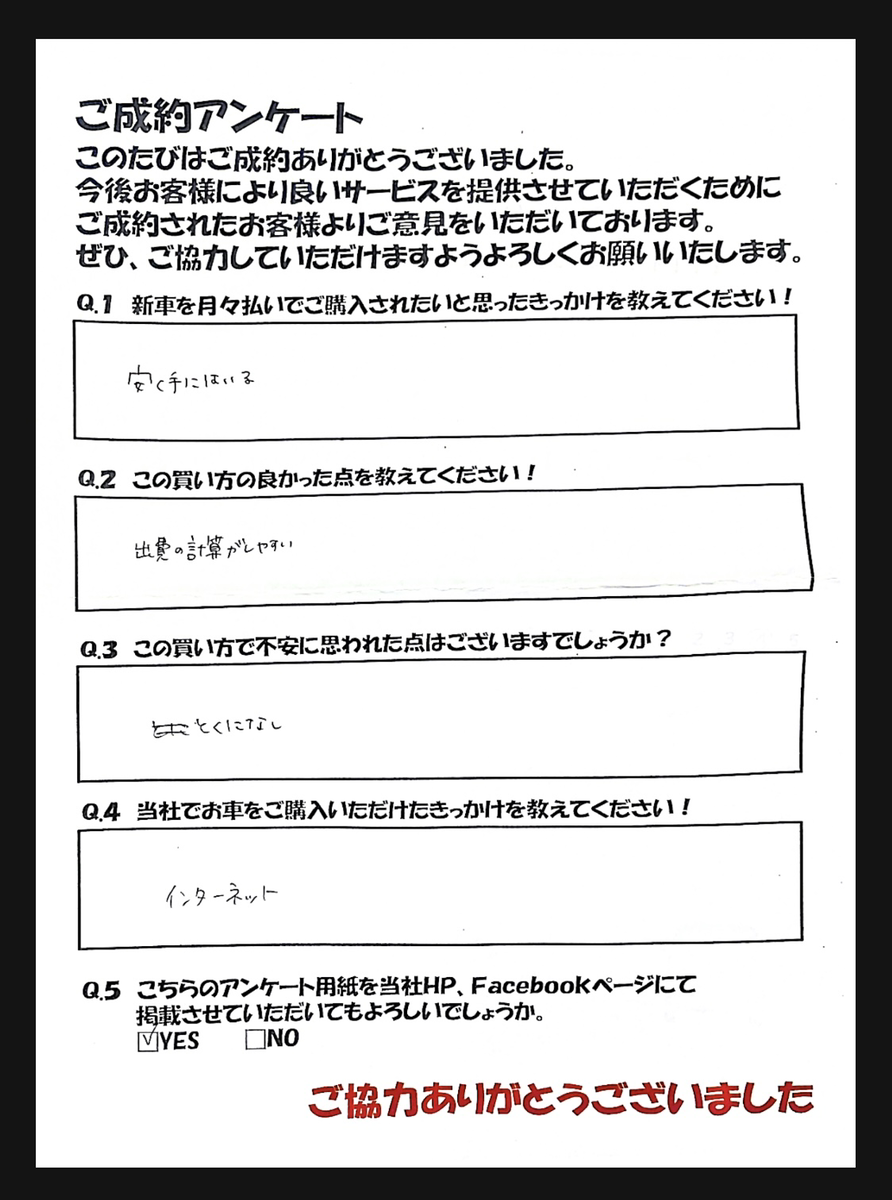 ご成約アンケート
このたびはご成約ありがとうございました。
今後お客様により良いサービスを提供させていただくために
ご成約されたお客様よりご意見をいただいております。
ぜひ、ご協力していただけますようよろしくお願いいたします。
Q.1 新車を月々払いでご購入されたいと思ったきっかけを教えてください！
安く手にはいる
Q.2 この買い方の良かった点を教えてください！
出費の計算がしやすい
Q.3 この買い方で不安に思われた点はございますでしょうか？
とくになし
Q.4 当社でお車をご購入いただけたきっかけを教えてください！
インターネット
Q.5 こちらのアンケート用紙を当社HP、Facebookページにて
掲載させていただいてもよろしいでしょうか。
☑YES □NO
ご協力ありがとうございました